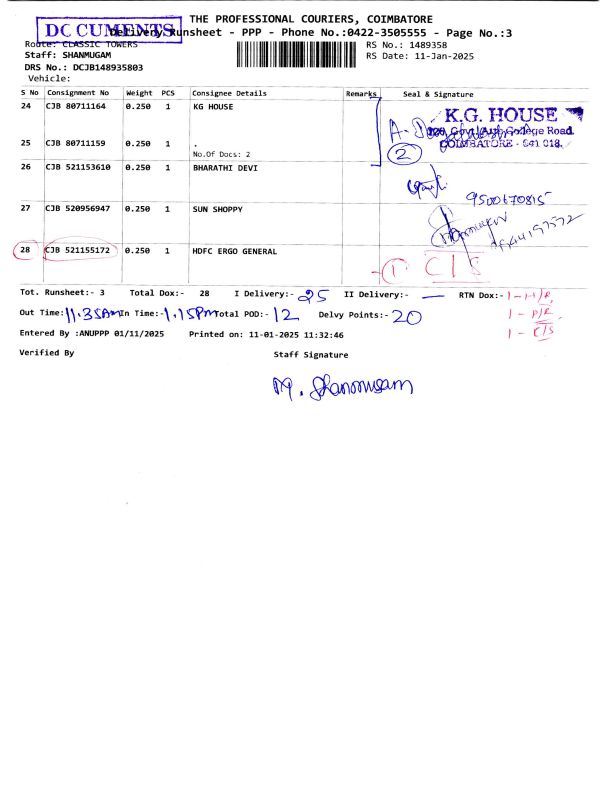 THE PROFESSIONAL COURIERS, COIMBATORE
DOCUMENTS
Delivery Runsheet - PPP - Phone No.:0422-3505555 - Page No.:3
Route: CLASSIC TOWERS
RS No.: 1489358
Staff: SHANMUGAM
RS Date: 11-Jan-2025
DRS No.: DCJB148935803
Vehicle:
S No Consignment No Weight PCS Consignee Details Remarks Seal & Signature
24 CJB 80711164 0.250 1 KG HOUSE
K.G. HOUSE
Govt. Arts College Road
COIMBATORE - 641 018.
25 CJB 80711159 0.250 1 .
No.Of Docs: 2
2
26 CJB 521153610 0.250 1 BHARATHI DEVI
9500670815
27 CJB 520956947 0.250 1 SUN SHOPPY
28 CJB 521155172 0.250 1 HDFC ERGO GENERAL
1 C/S
Tot. Runsheet:- 3 Total Dox:- 28 I Delivery:- 25 II Delivery:- — RTN Dox:- 1-
Out Time: 11.35Am In Time:- 1.15Pm Total POD:- 12 Delvy Points:- 20
1 - P/R
1 - C/S
Entered By :ANUPPP 01/11/2025 Printed on: 11-01-2025 11:32:46
Verified By Staff Signature
M. Shanmugam